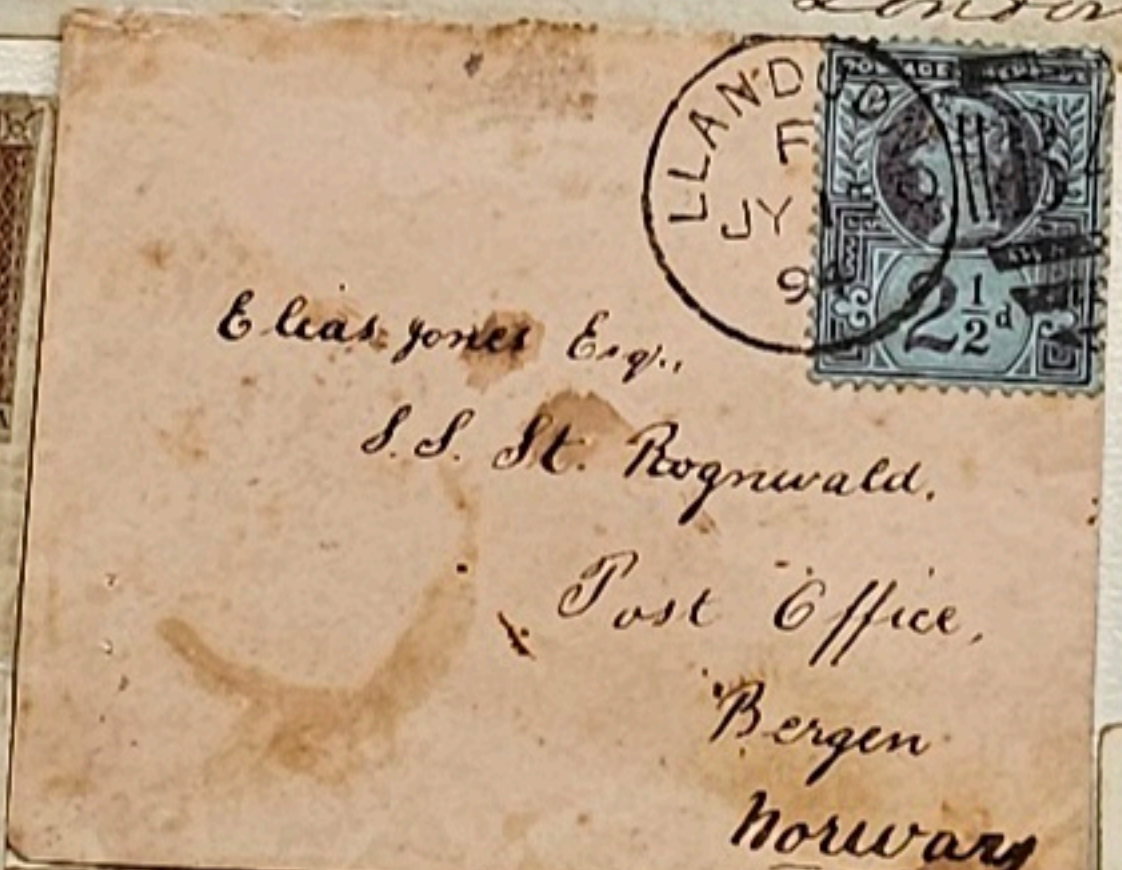 London
LLANDUD
F
JY
9
POSTAGE
2½d
Elias Jones Esq.,
S.S. St. Rognwald.
Post Office,
Bergen
Norway